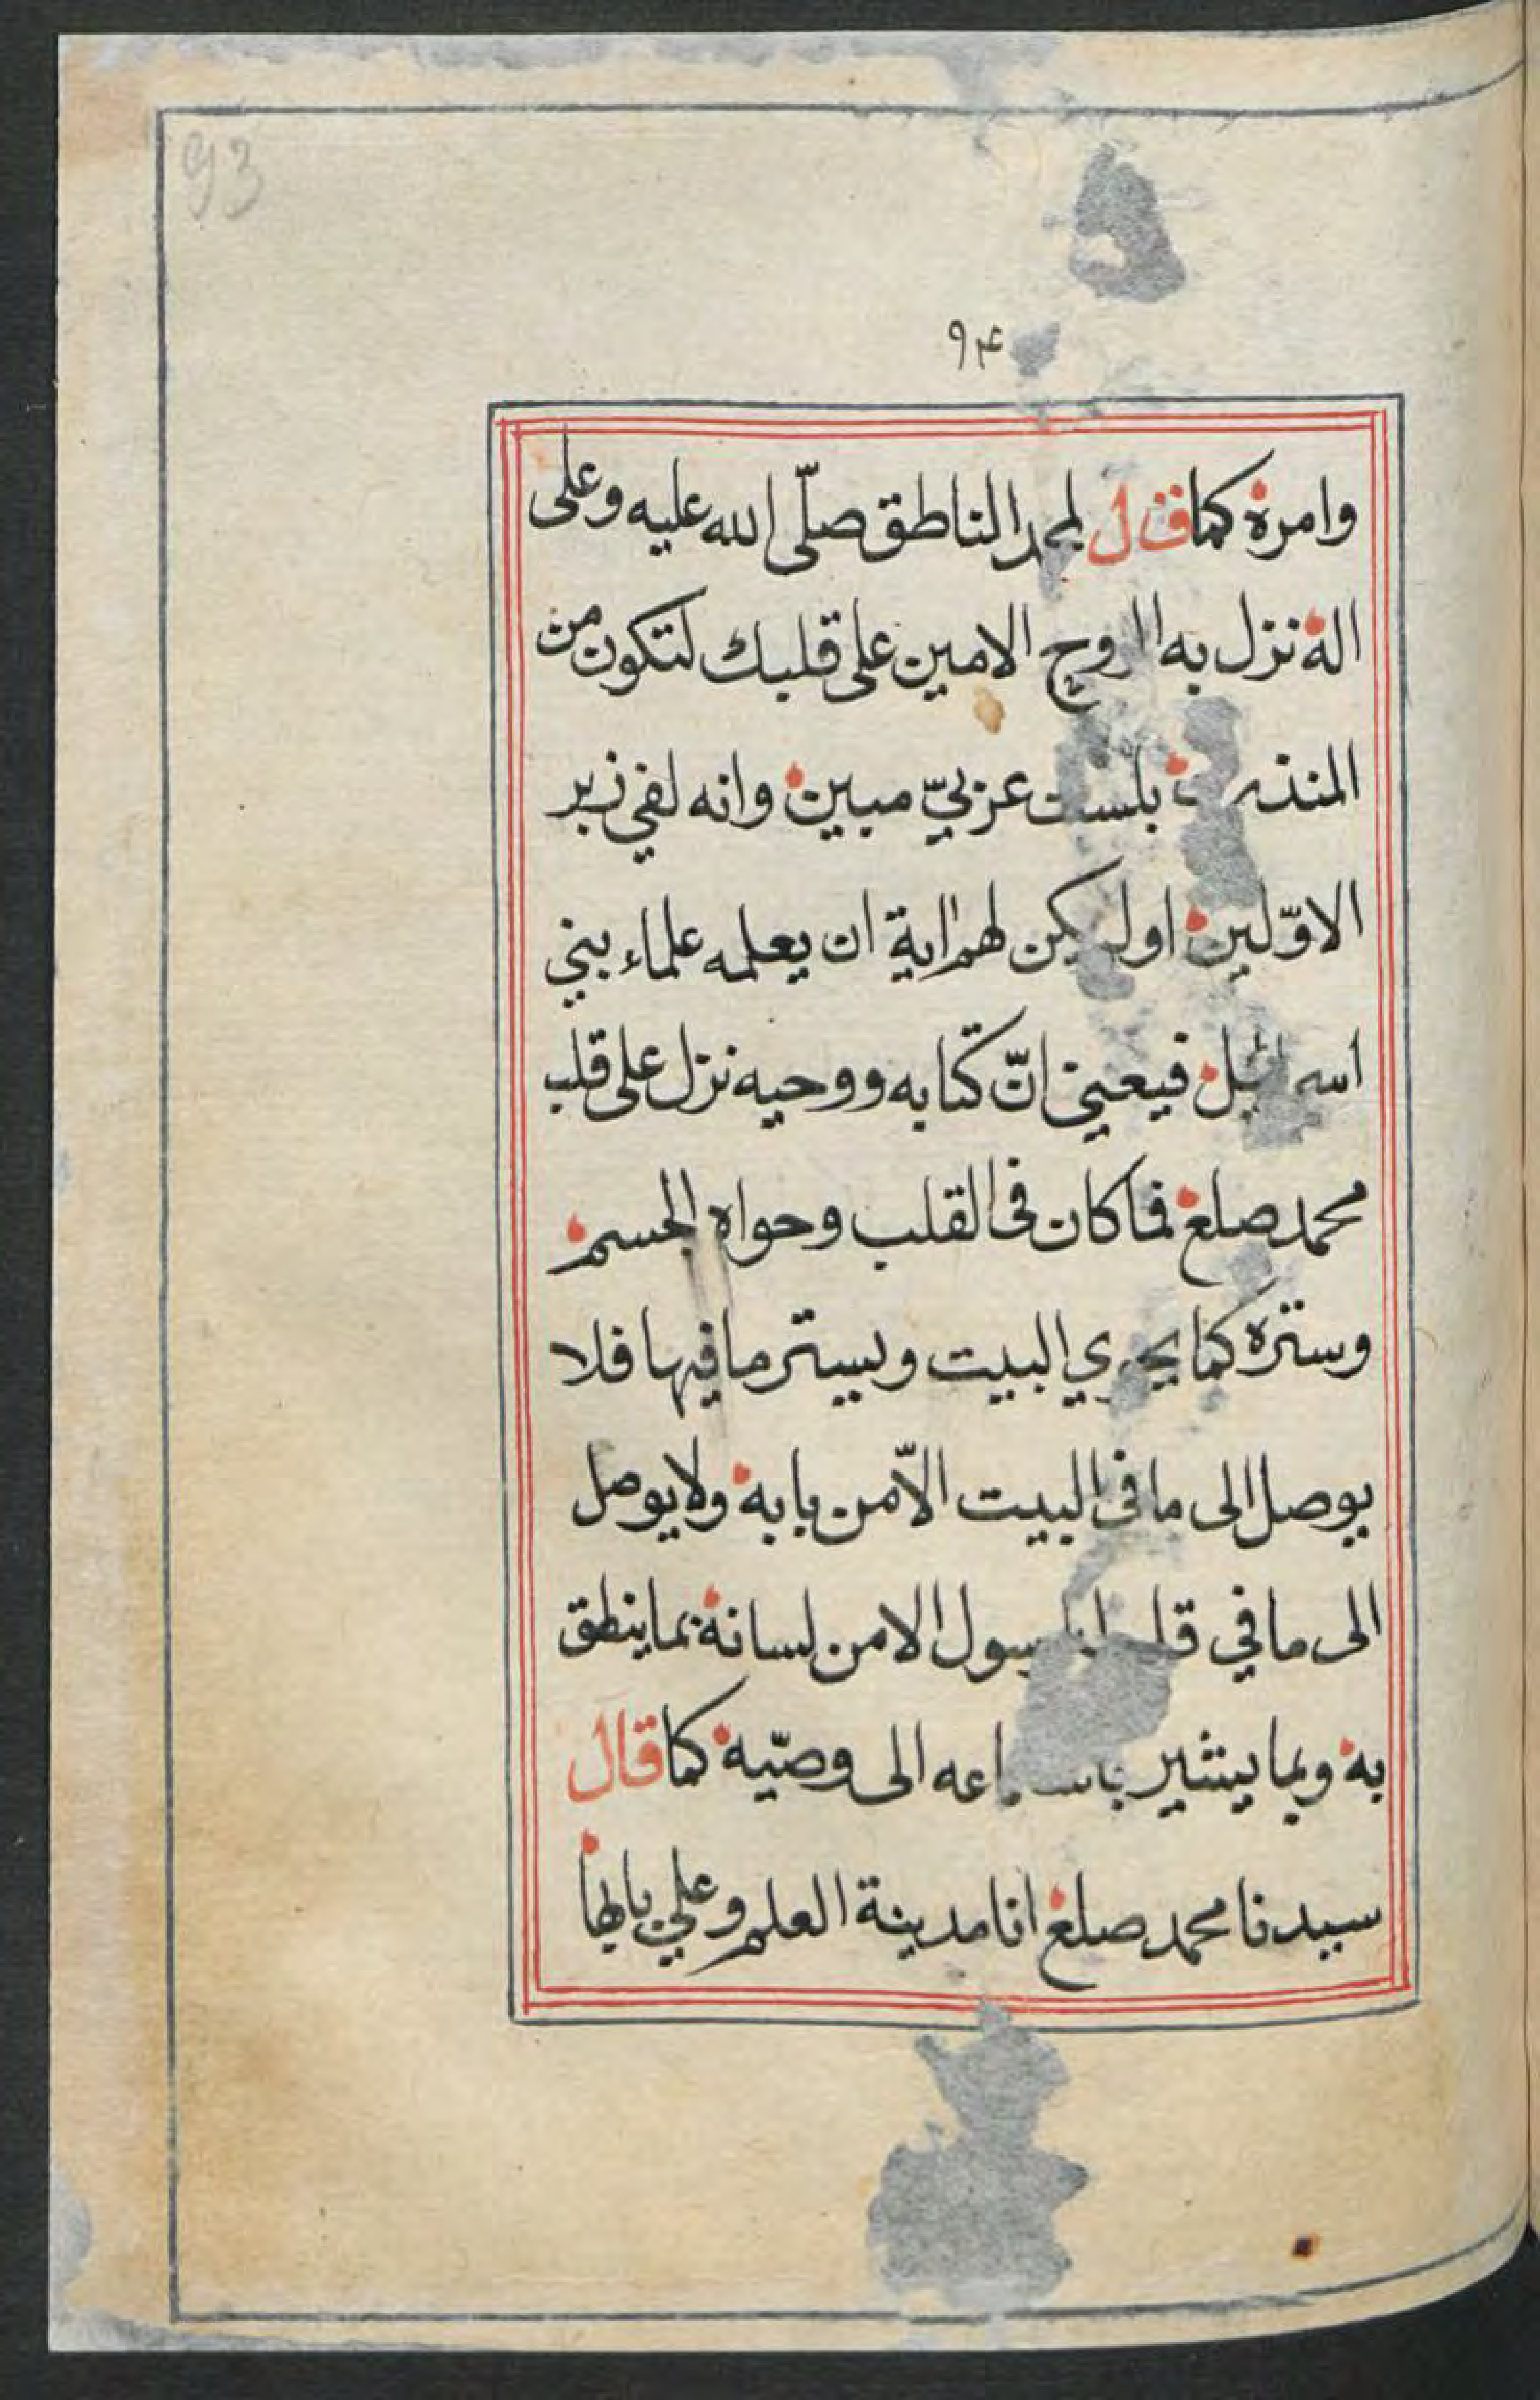 93
٩٤
وامره كما قال لمحمد الناطق صلّى الله عليه وعلى
اله نزل به الروح الامين على قلبك لتكون من
المنذرين بلسان عربيّ مبين وانه لفي زبر
الاوّلين اولم يكن لهم اية ان يعلمه علماء بني
اسرائيل فيعني انّ كتابه ووحيه نزل على قلب
محمد صلع فما كان فى القلب وحواه الجسم
وستره كما يحوي البيت ويستر ما فيها فلا
يوصل الى ما فى البيت الّا من بابه ولا يوصل
الى ما في قلب الرسول الا من لسانه بما ينطق
به وبما يشير الى وصيّه كما قال
سيدنا محمد صلع انا مدينة العلم وعلي بابها